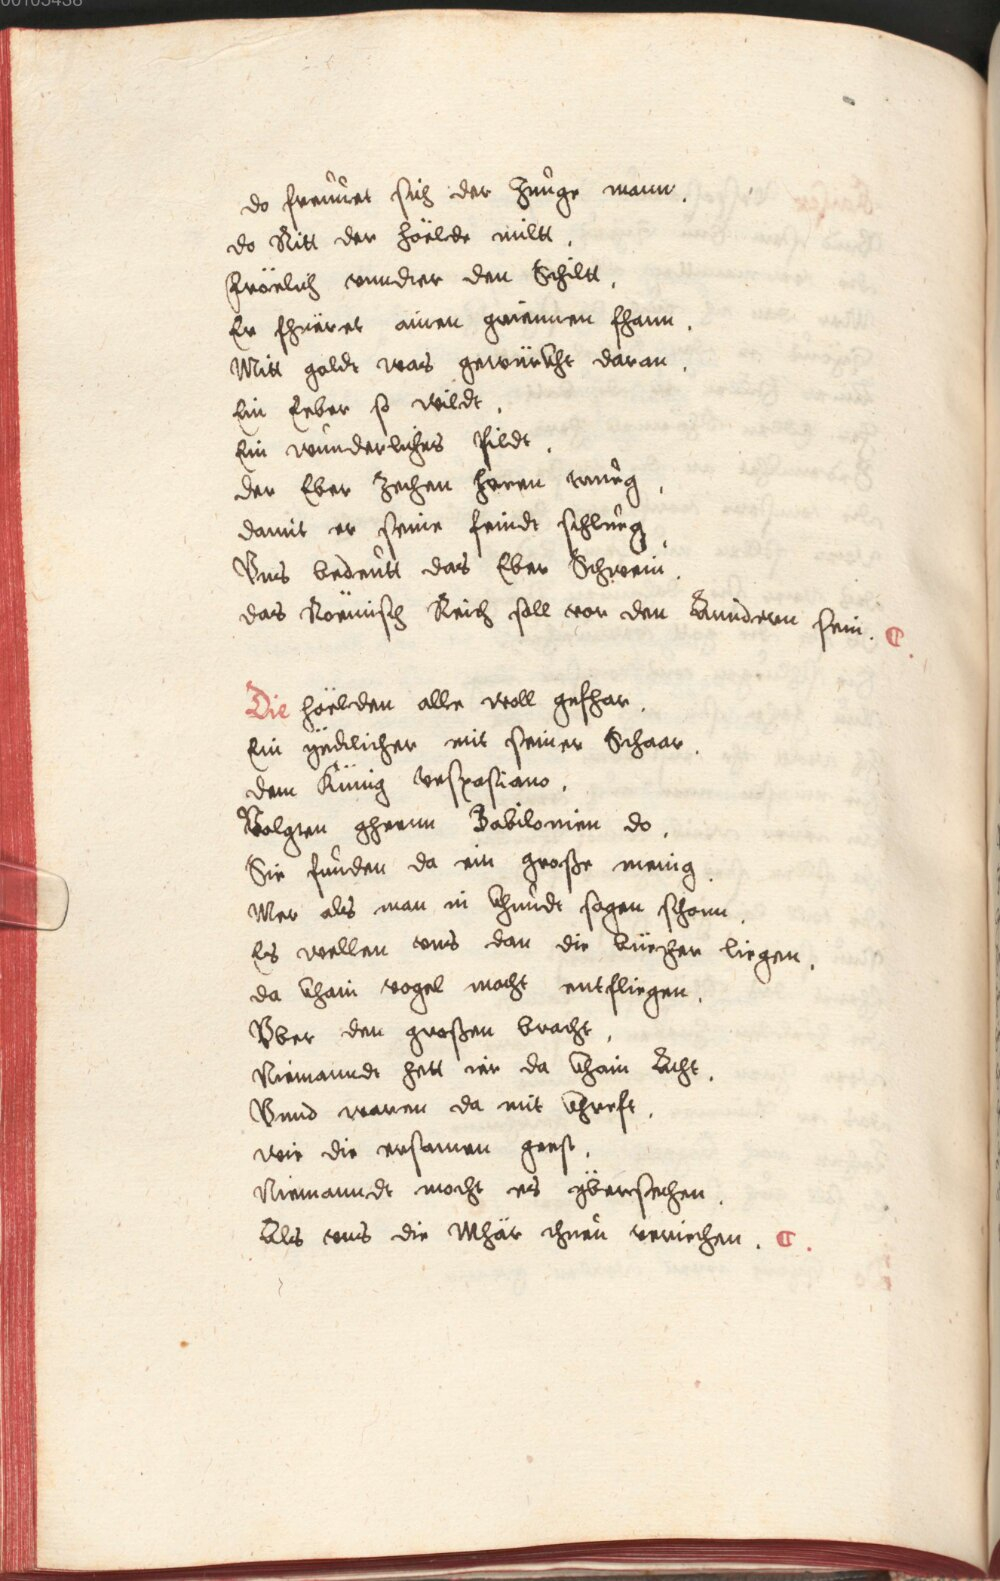 do freuŭet sich der Junge mann.
do Ritt der höelde milt.
fröelich vnnder den Schiltt.
Er fhüeret ainen grienneen fhann.
Mitt goldt was gewürkht daran.
Ein Eeber so wildt.
Ein wŭnderliches Pildt.
der Eber Zechen horen trueg.
damit er seine feindt schlueg.
Vns bedeŭtt das Eber Schwein.
das Roemisch Reich soll vor den Annderen sein.
Die höelden alle woll gefhar.
Ein yedlicher mit seiner Schaar.
dem Künig Vespasiano.
Volgten ghenn Babilonien do.
Sie fŭnden da ein große menig.
Mer als man in khŭndt sagen schonn.
Es wellen vns dan die büecher liegen.
da khain vogel mocht entfliegen.
Vber den großen bracht.
Niemanndt hett ier da khain Acht.
Vnnd waren da mit khreft.
wie die ersamen gest.
Niemanndt mocht es ybersechen.
Als vns die Mhär thuen veriechen.